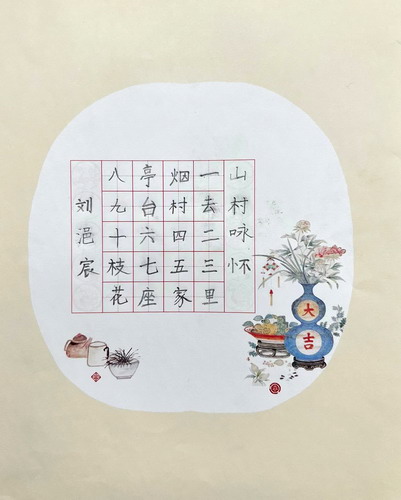 山村咏怀
一去二三里
烟村四五家
亭台六七座
八九十枝花
刘浥宸
大吉